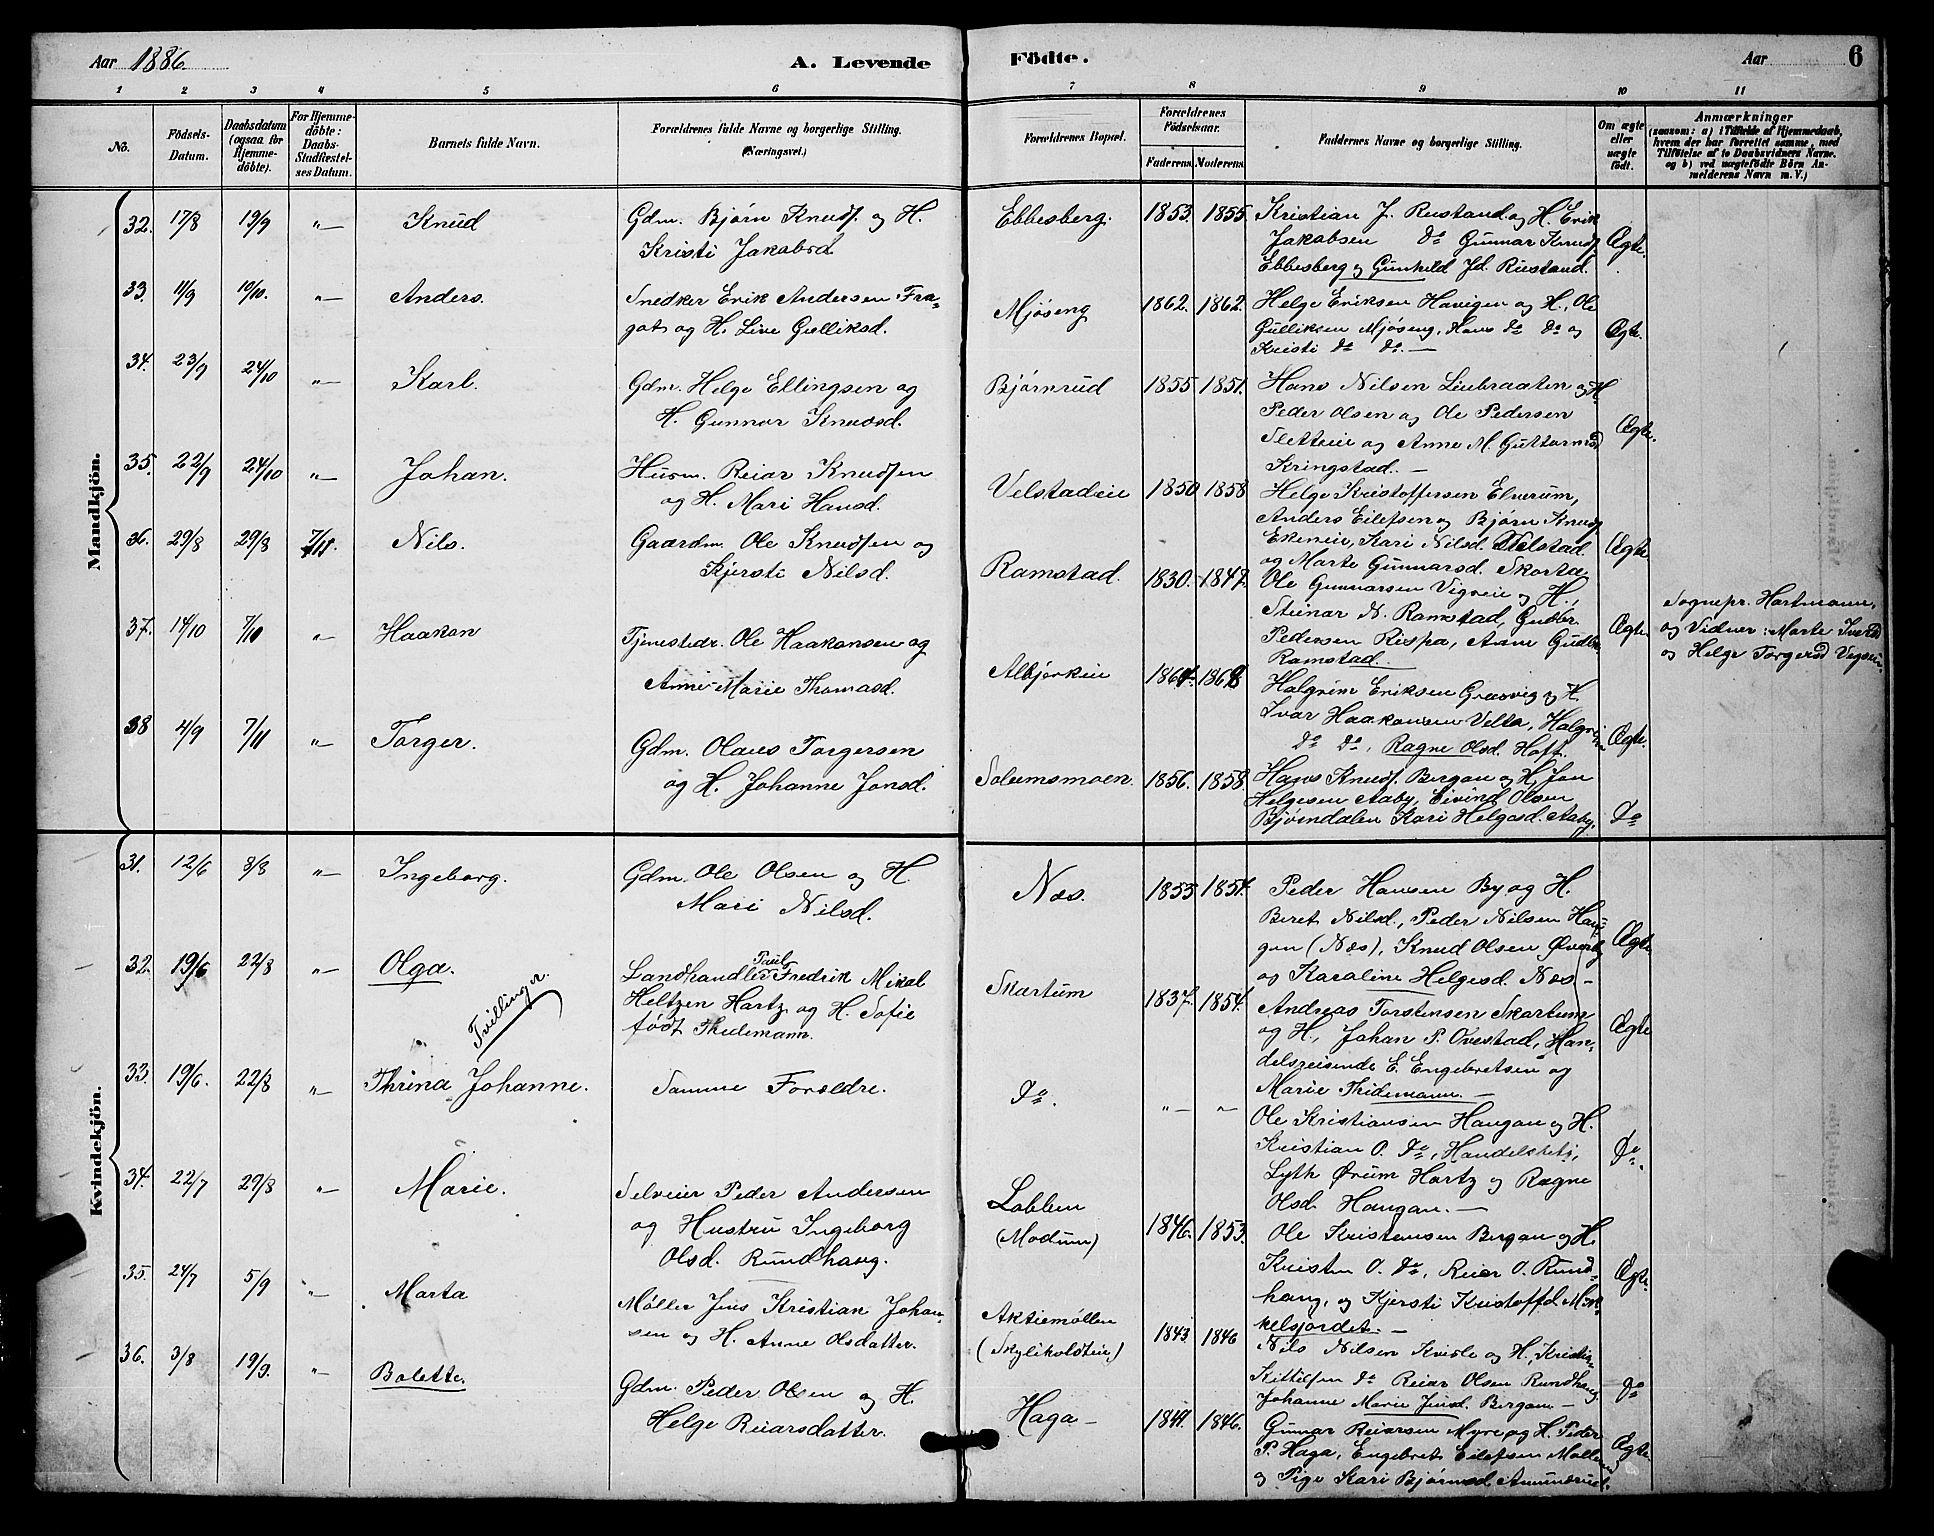 Aar 1886.
A. Levende
Födte.
Aar
6
1 2 3 4 5 6 7 8 9 10 11
No.
Födsels-Datum.
Daabsdatum (ogsaa for Hjemme-döbte).
For Hjemme-döbte: Daabs-Stadfæstel-ses Datum.
Barnets fulde Navn.
Forældrenes fulde Navne og borgerlige Stilling. (Næringsvei.)
Forældrenes Bopæl.
Forældrenes Födselsaar.
Faderens. Moderens.
Faddernes Navne og borgerlige Stilling.
Om ægte eller uægte født.
Anmærkninger
(saasom: a) i Tilfælde af Hjemmedaab,
hvem der har forrettet samme, med
Tilföielse af to Daabsvidners Navne,
og b) ved uægtefödte Börn An-
melderens Navn m. V.)
Mandkjön.
32. 17/8 19/9 „ Knud
Gdm. Bjørn Knuds. og H.
Kristi Jakobsd
Ebbesberg. 1853. 1855.
Kristian J. Rustand og H. Erik
Jakobsen do Gunnar Knuds.
Ebbesberg og Gunhild Jd. Rustand.
Ægte.
33. 11/9 10/10. „ Anders.
Snedker Erik Andersen Fra-
gat og H. Live Gulliksd.
Mjøseng 1862. 1862.
Helge Eriksen Havigen og H., Ole
Gulliksen Mjøseng, Hans do do og
Kristi do do. —
Ægte.
34. 23/9 24/10 „ Karl.
Gdm. Helge Ellingsen og
H. Gunnor Knudsd.
Bjørnrud 1855. 1851.
Hans Nilsen Liubraaten og H.
Peder Olsen og Ole Pedersen
Sletteie og Anne M. Guttormsd
Kringstad. —
Ægte.
35. 22/9 24/10 „ Johan.
Husm. Reiar Knudsen
og H. Mari Hansd.
Velstadeie 1850 1858
Helge Kristoffersen Elverum,
Anders Eilefsen og Bjørn Knuds.
Ekeneie, Kari Nilsd. Velstad
og Marte Gunnarsd. Skortæ
Ægte
36. 29/8 29/8 7/11. Nils.
Gaardm. Ole Knudsen og
Kjersti Nilsd.
Ramstad. 1830. 1847.
Ole Gunnarsen Vigveie og H.,
Steinar N. Ramstad, Gudbr.
Pedersen Rispa, Anne Gudbr.
Ramstad.
Ægte
Sognepr. Hartmann,
og Vidner: Marte Iversd
og Helge Torgersd
37. 14/10 7/11 „ Haakon
Tjenestedr. Ole Haakonsen og
Anne Marie Thomasd.
Albjerkeie 1864. 1868
Halgrim Eriksen Græsvig og H.
Ivar Haakonsen Velta, Halgrim
do do, Ragne Olsd. Hoff.
Ægte.
38 4/9 7/11 „ Torger.
Gdm. Olaus Torgersen
og H. Johanne Jonsd.
Solumsmoen. 1856. 1858.
Hans Knuds. Bergan og H. Jon
Helgesen Aaby, Eivind Olsen
Bjørndalen Kari Helgesd. Aaby.
do
Kvindekjön.
31. 12/6 8/8 „ Ingeborg.
Gdm. Ole Olsen og H.
Mari Nilsd.
Næs. 1855 1854.
Peder Hansen By og H.
Beret Nilsd., Peder Nilsen Hau-
gen (Næs), Knud Olsen Øverby
og Karoline Helgesd. Næs —
Ægte
32. 19/6 22/8 „ Olga.
Tvillinger.
Landhandler Poul Fredrik Mikal
Heltzen Hartz og H. Sofie
født Thidemann.
Skartum 1837. 1854.
Andreas Torstensen Skartum
og H., Johan P. Ovestad, Han-
delsreisende E. Engebretsen og
Marie Thidemann. —
Ægte
33. 19/6. 22/8 „ Thrina Johanne.
Samme Forældre.
do. „ „
Ole Kristiansen Haugan og H.
Kristian O. do, Handelsbetj.,
Lyth Ørum Hartz og Ragne
Olsd. Haugan. —
do.
34. 22/7 29/8 „ Marie.
Selveier Peder Andersen
og Hustru Ingeborg
Olsd. Rundhaug.
Lobben
(Modum)
1846. 1853.
Ole Kristensen Bergan og H.
Kristen O. do, Reier O. Rund-
haug, og Kjersti Kristoffd. Mør-
kelsjordet. —
Ægte
35. 24/7 5/9 „ Marta
Møller Jens Kristian Johan-
sen og H. Anne Olsdatter.
Aktiemøllen
1843 1846
Nils Nilsen Kvisle og H., Kristian
Kittilsen do Reiar Olsen Rundhaug
Johanne Marie Jensd. Bergan. —
do
36. 3/8 19/9. „ Bolette.
Gdm. Peder Olsen og H.
Helge Reiarsdatter.
Haga — 1841. 1846.
Gunnar Reiarsen Myre og H. Peder
P. Haga, Engebret Eilefsen Mollerud
og Pige Kari Bjørnsd. Amundrud.
Ægte